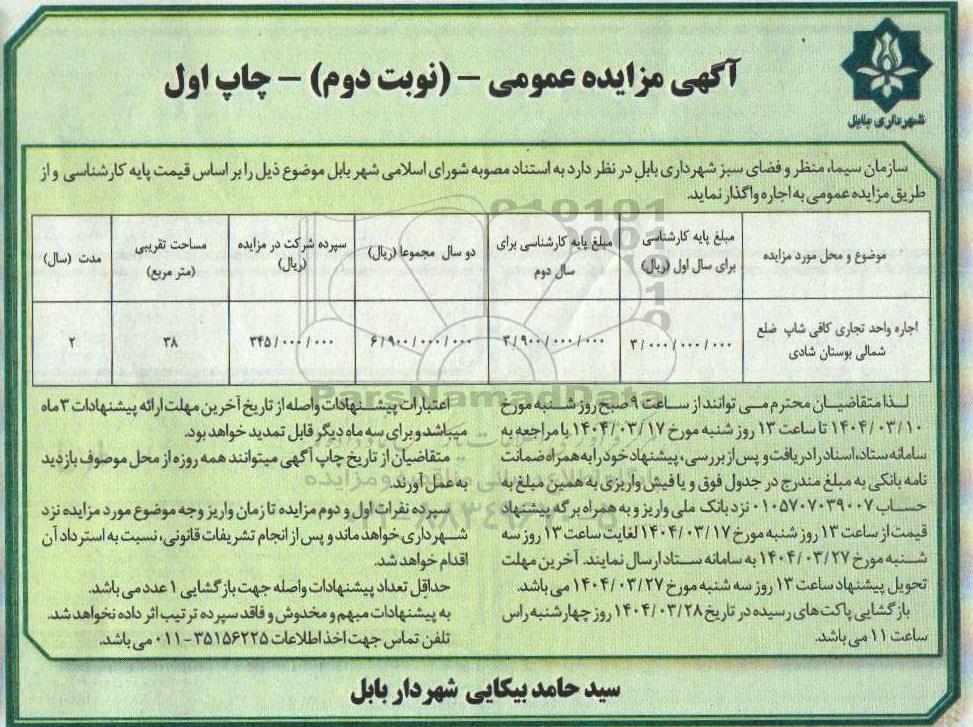 شهرداری بابل
آگهی مزایده عمومی – (نوبت دوم) – چاپ اول
سازمان سیما، منظر و فضای سبز شهرداری بابل در نظر دارد به استناد مصوبه شورای اسلامی شهر بابل موضوع ذیل را بر اساس قیمت پایه کارشناسی و از
طریق مزایده عمومی به اجاره واگذار نماید.
موضوع و محل مورد مزایده
مبلغ پایه کارشناسی
برای سال اول (ریال)
مبلغ پایه کارشناسی برای
سال دوم
دو سال مجموعا (ریال)
سپرده شرکت در مزایده
(ریال)
مساحت تقریبی
(متر مربع)
مدت (سال)
اجاره واحد تجاری کافی شاپ ضلع
شمالی بوستان شادی
۳/۰۰۰/۰۰۰/۰۰۰
۳/۹۰۰/۰۰۰/۰۰۰
۶/۹۰۰/۰۰۰/۰۰۰
۳۴۵/۰۰۰/۰۰۰
۳۸
۲
لذا متقاضیان محترم می توانند از ساعت ۹ صبح روز شنبه مورخ
۱۴۰۴/۰۳/۱۰ تا ساعت ۱۳ روز شنبه مورخ ۱۴۰۴/۰۳/۱۷ با مراجعه به
سامانه ستاد، اسناد را دریافت و پس از بررسی، پیشنهاد خود را به همراه ضمانت
نامه بانکی به مبلغ مندرج در جدول فوق و یا فیش واریزی به همین مبلغ به
حساب ۰۱۰۵۷۰۷۰۳۹۰۰۷ نزد بانک ملی واریز و به همراه برگه پیشنهاد
قیمت از ساعت ۱۳ روز شنبه مورخ ۱۴۰۴/۰۳/۱۷ لغایت ساعت ۱۳ روز سه
شنبه مورخ ۱۴۰۴/۰۳/۲۷ به سامانه ستاد ارسال نمایند. آخرین مهلت
تحویل پیشنهاد ساعت ۱۳ روز سه شنبه مورخ ۱۴۰۴/۰۳/۲۷ می باشد.
بازگشایی پاکت های رسیده در تاریخ ۱۴۰۴/۰۳/۲۸ روز چهارشنبه راس
ساعت ۱۱ می باشد.
اعتبارات پیشنهادات واصله از تاریخ آخرین مهلت ارائه پیشنهادات ۳ ماه
میباشد و برای سه ماه دیگر قابل تمدید خواهد بود.
متقاضیان از تاریخ چاپ آگهی میتوانند همه روزه از محل موصوف بازدید
به عمل آورند.
سپرده نفرات اول و دوم مزایده تا زمان واریز وجه موضوع مورد مزایده نزد
شهرداری خواهد ماند و پس از انجام تشریفات قانونی، نسبت به استرداد آن
اقدام خواهد شد.
حداقل تعداد پیشنهادات واصله جهت بازگشایی ۱ عدد می باشد.
به پیشنهادات مبهم و مخدوش و فاقد سپرده ترتیب اثر داده نخواهد شد.
تلفن تماس جهت اخذ اطلاعات ۳۵۱۵۶۲۲۵-۰۱۱ می باشد.
سید حامد بیکایی شهردار بابل
ParsNamadData